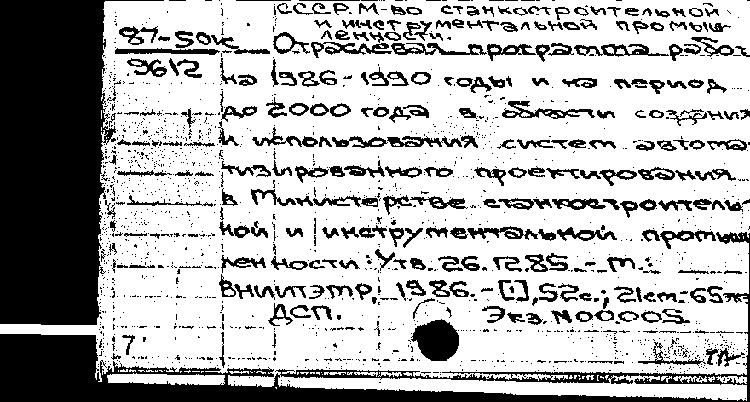 СССР. М-во станкостроительной
и инструментальной промыш-
ленности.
87-50к Отраслевая программа работ
9612 на 1986-1990 годы и на период
до 2000 года в области создания
и использования систем автома-
тизированного проектирования
в Министерстве станкостроитель-
ной и инструментальной промыш
ленности: Утв. 26.12.85. - М.:
ВНИИТЭМР, 1986. - [1], 52с.; 21см.- 65экз
ДСП. Экз. N00.005
7.